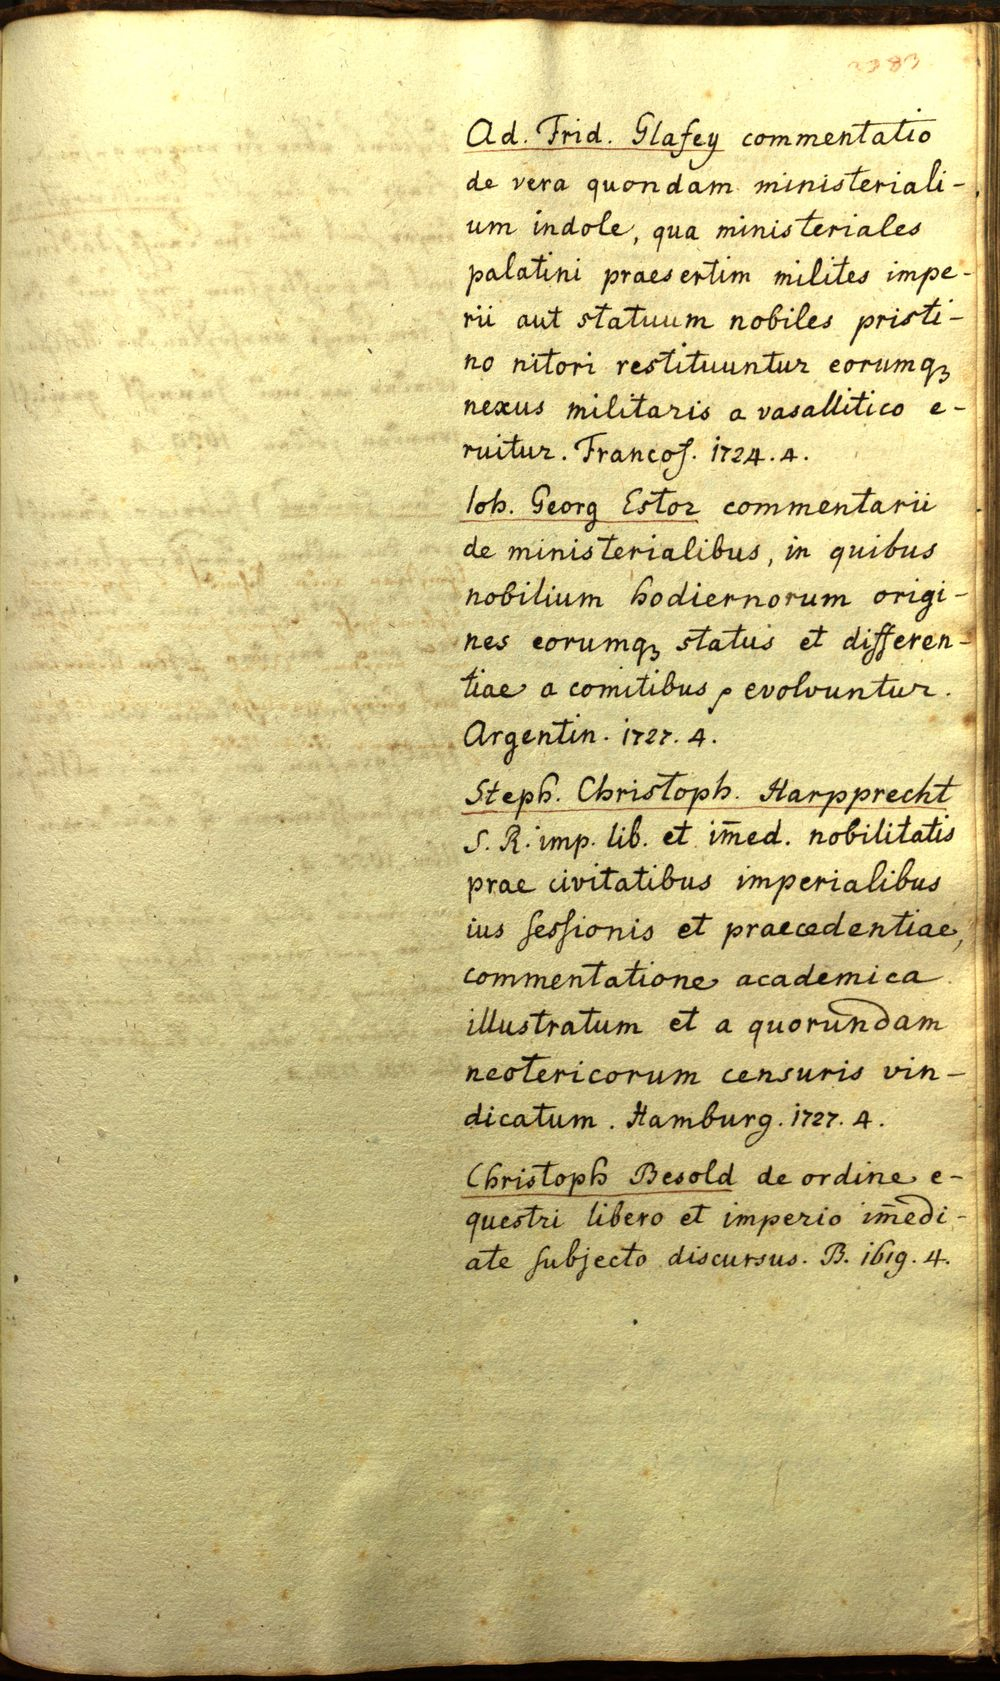 Ad. Frid. Glafey commentatio
de vera quondam ministeriali-
um indole, qua ministeriales
palatini praesertim milites impe-
rii aut statuum nobiles pristi-
no nitori restituuntur eorumqꝫ
nexus militaris a vasallitico e-
ruitur. Francof. 1724. 4.
Ioh. Georg Estor commentarii
de ministerialibus, in quibus
nobilium hodiernorum origi-
nes eorumqꝫ status et differen-
tiae a comitibus evolvuntur.
Argentin. 1727. 4.
Steph. Christoph. Harpprecht
S. R. imp. lib. et im̄ed. nobilitatis
prae civitatibus imperialibus
ius seſsionis et praecedentiae,
commentatione academica
illustratum et a quorundam
neotericorum censuris vin-
dicatum. Hamburg. 1727. 4.
Christoph Besold de ordine e-
questri libero et imperio im̄edi-
ate subjecto discursus. B. 1619. 4.